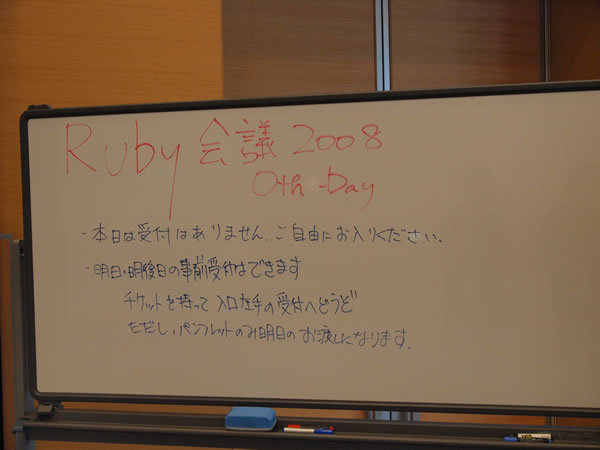 Ruby会議 2008
0th-Day
・本日は受付はありません、ご自由にお入りください.
・明日・明後日の事前受付はできます
・チケットを持って入口左手の受付へどうぞ
・ただし、パンフレットのみ明日のお渡しになります.